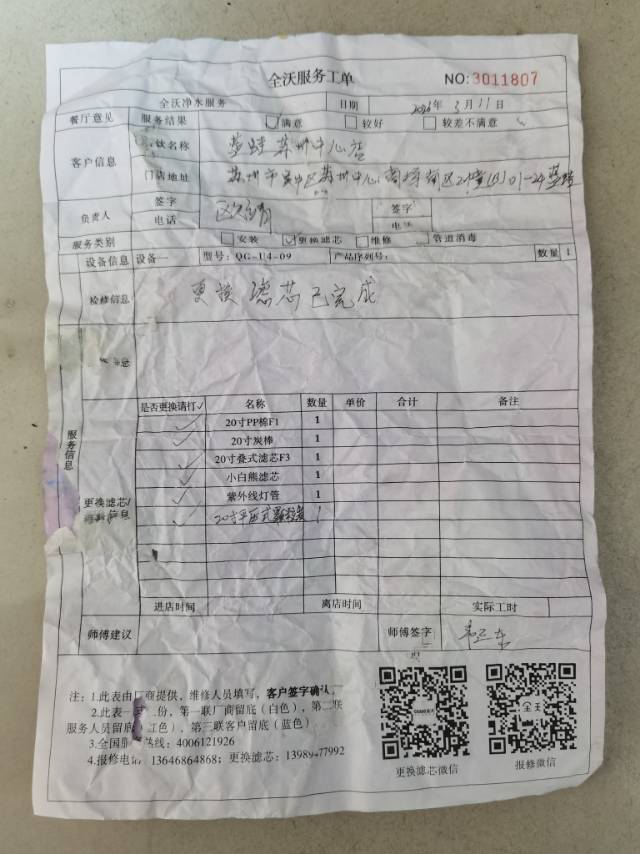 全沃服务工单 NO:3011807
全沃净水服务 日期 2026年3月11日
餐厅意见 服务结果 满意 较好 较差不满意
客户信息
名称 苏州中心店
门店地址 苏州市 中区苏州中心商
负责人 签字 签字
电话 电话
服务类别 安装 ✓更换滤芯 维修 管道消毒
设备信息 设备一 型号：QG-U4-09 产品序列号： 数量 1
检修信息 更换滤芯已完成
息
服务信息
是否更换请打✓ 名称 数量 单价 合计 备注
✓ 20寸PP棉F1 1
✓ 20寸炭棒 1
✓ 20寸叠式滤芯F3 1
✓ 小白熊滤芯 1
✓ 紫外线灯管 1
更换滤芯/
✓ 20寸 1
进店时间 离店时间 实际工时
师傅建议 师傅签字
注：1.此表由厂商提供，维修人员填写，客户签字确认。
2.此表一 份，第一联厂商留底（白色），第二联
服务人员留底（红色），第三联客户留底（蓝色）
3.全国服 热线：4006121926
4.报修电话 13646864868；更换滤芯：
更换滤芯微信 报修微信